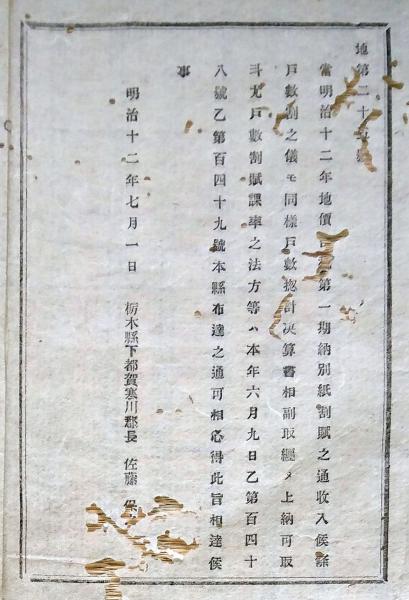 地第二十號
當明治十二年地價 第一期納別紙割賦之通收入候條
戸數割之儀モ同樣戸數惣計決算書相副取纒メ上納可取
斗尤戸數割賦課率之法方等ハ本年六月九日乙第百四十
八號乙第百四十九號本縣布達之通可相心得此旨相達候
事
明治十二年七月一日
栃木縣下都賀寒川郡長 佐藤